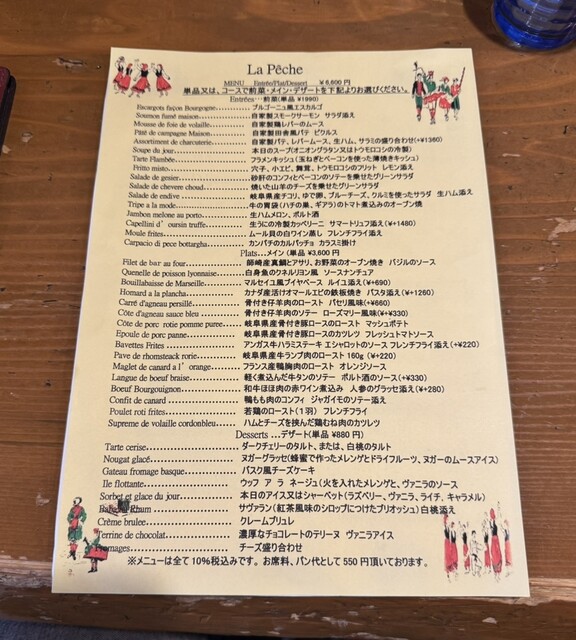 La Pêche
MENU Entrée/Plat/Dessert ￥6,600円
単品又は、コースで前菜・メイン・デザートを下記よりお選びください。
Entrées…前菜(単品 ¥1990)
Escargots façon Bourgogne………ブルゴーニュ風エスカルゴ
Soumon fumé maison………自家製スモークサーモン サラダ添え
Mousse de foie de volaille………自家製鶏レバーのムース
Pâté de campagne Maison………自家製田舎風パテ ピクルス
Assortiment de charcuterie………自家製パテ、レバームース、生ハム、サラミの盛り合わせ(+¥1360)
Soupe du jour………本日のスープ(オニオングラタン又はトウモロコシの冷製)
Tarte Flambée………フラメンキッシュ(玉ねぎとベーコンを使った薄焼きキッシュ)
Fritto misto………穴子、小エビ、舞茸、トウモロコシのフリット レモン添え
Salade de gesier………砂肝のコンフィとベーコンのソテーを乗せたグリーンサラダ
Salade de chevere choud………焼いた山羊のチーズを乗せたグリーンサラダ
Salade de endive………岐阜県産チコリ、ゆで卵、ブルーチーズ、クルミを使ったサラダ 生ハム添え
Tripe a la mode………牛の胃袋(ハチの巣、ギアラ)のトマト煮込みのオーブン焼
Jambon melone au porto………生ハムメロン、ポルト酒
Capellini d’oursin truffe………生うにの冷製カッペリーニ サマートリュフ添え(+1480)
Moule frites………ムール貝の白ワイン蒸し フレンチフライ添え
Carpacio di pece bottargha………カンパチのカルパッチョ カラスミ掛け
Plats…メイン (単品 ¥3,600円
Filet de bar au four………師崎産真鯛とアサリ、お野菜のオーブン焼き バジルのソース
Quenelle de poisson lyonnaise………白身魚のクネルリヨン風 ソースナンチュア
Bouillabaisse de Marseille………マルセイユ風ブイヤベース ルイユ添え(¥+690)
Homard a la plancha………カナダ産活けオマールエビの鉄板焼き パスタ添え(+¥1260)
Carré d'agneau persillé………骨付き仔羊肉のロースト パセリ風味(+¥660)
Côte d'agneau sauce bleu………骨付き仔羊肉のソテー ローズマリー風味(+¥330)
Côte de porc rotie pomme puree………岐阜県産骨付き豚ロースのロースト マッシュポテト
Epoule de porc panne………岐阜県産骨付き豚ロースのカツレツ フレッシュトマトソース
Bavettes Frites………アンガス牛ハラミステーキ エシャロットのソース フレンチフライ添え(+¥220)
Pave de rhomsteack rorie………岐阜県産牛ランプ肉のロースト 160g (¥+220)
Maglet de canard a l’orange………フランス産鴨胸肉のロースト オレンジソース
Langue de boeuf braise………軽く煮込んだ牛タンのソテー ポルト酒のソース(+¥330)
Boeuf Bourgouignon………和牛ほほ肉の赤ワイン煮込み 人参のグラッセ添え(¥+280)
Confit de canard………鴨もも肉のコンフィ ジャガイモのソテー添え
Poulet roti frites………若鶏のロースト(1羽) フレンチフライ
Supreme de volaille cordonbleu………ハムとチーズを挟んだ鶏むね肉のカツレツ
Desserts …デザート(単品 ¥880円)
Tarte cerise………ダークチェリーのタルト、または、白桃のタルト
Nougat glacé………ヌガーグラッセ(蜂蜜で作ったメレンゲとドライフルーツ、ヌガーのムースアイス)
Gateau fromage basque………バスク風チーズケーキ
Ile flottante………ウッフ ア ラ ネージュ(火を入れたメレンゲと、ヴァニラのソース
Sorbet et glace du jour………本日のアイス又はシャーベット(ラズベリー、ヴァニラ、ライチ、キャラメル)
Rhum………サヴァラン(紅茶風味のシロップにつけたブリオッシュ)白桃添え
Crème brulee………クレームブリュレ
Terrine de chocolat………濃厚なチョコレートのテリーヌ ヴァニラアイス
Fromages………チーズ盛り合わせ
※メニューは全て10%税込みです。お席料、パン代として550円頂いております。